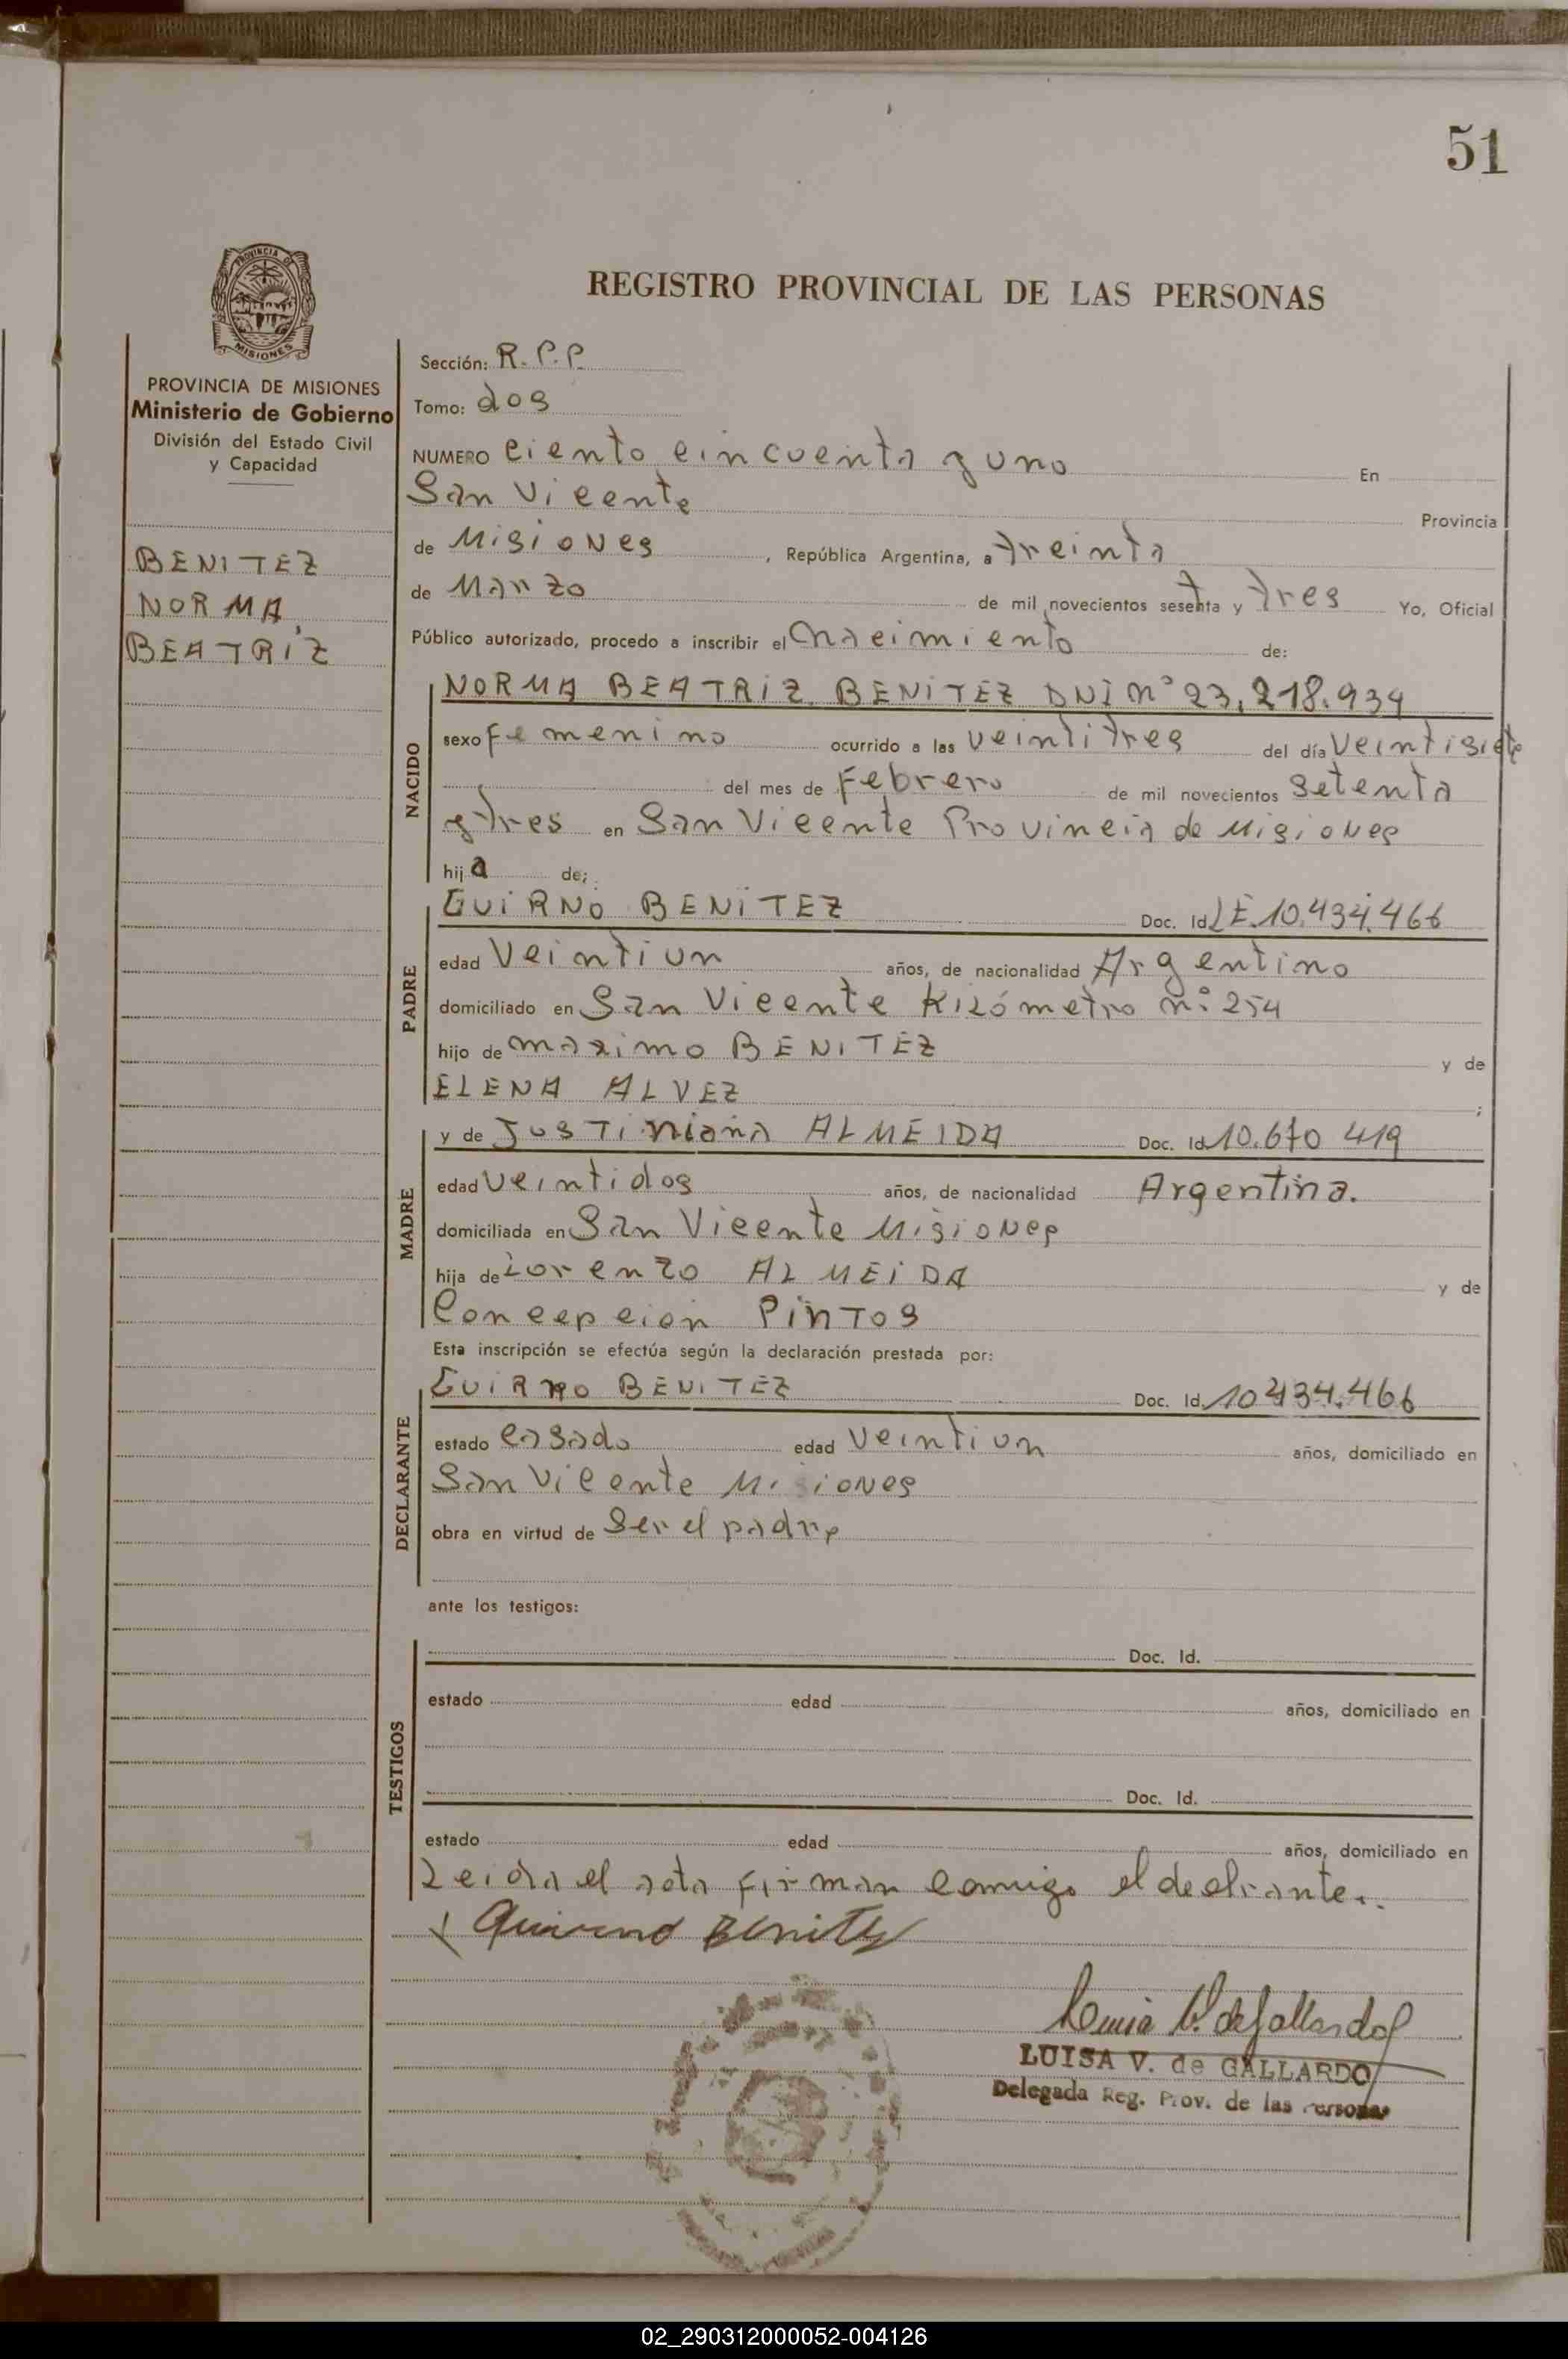 51
PROVINCIA DE
MISIONES
REGISTRO PROVINCIAL DE LAS PERSONAS
PROVINCIA DE MISIONES
Ministerio de Gobierno
División del Estado Civil
y Capacidad
BENITEZ
NORMA
BEATRIZ
Sección: R.P.P.
Tomo: dos
NUMERO ciento cincuenta y uno En
San Vicente Provincia
de Misiones, República Argentina, a treinta
de Marzo de mil novecientos sesenta y tres Yo, Oficial
Público autorizado, procedo a inscribir el nacimiento de:
NACIDO
NORMA BEATRIZ BENITEZ DNI nº 23.218.934
sexo femenino ocurrido a las veintitres del día veintisiete
del mes de Febrero de mil novecientos setenta
y tres en San Vicente Provincia de Misiones
hija de:
PADRE
BENITEZ Doc. Id LE.10.434.466
edad Veintiun años, de nacionalidad Argentino
domiciliado en San Vicente Kilómetro nº 254
hijo de maximo BENITEZ y de
ELENA ALVEZ;
MADRE
y de JUSTiniana ALMEIDA Doc. Id 10.670 419
edad Veintidos años, de nacionalidad Argentina.
domiciliada en San Vicente Misiones
hija de Lorenzo ALMEIDA y de
Concepcion PINTOS
Esta inscripción se efectúa según la declaración prestada por:
DECLARANTE
BENITEZ Doc. Id. 10434.466
estado casado edad Veintiun años, domiciliado en
San Vicente Misiones
obra en virtud de Ser el padre
ante los testigos:
TESTIGOS
Doc. Id.
estado edad años, domiciliado en
Doc. Id.
estado edad años, domiciliado en
Leida el acta firman conmigo el declarante.
Quirno Benitez
Luisa V. de Gallardo
LUISA V. de GALLARDO
Delegada Reg. Prov. de las Personas
02_290312000052-004126